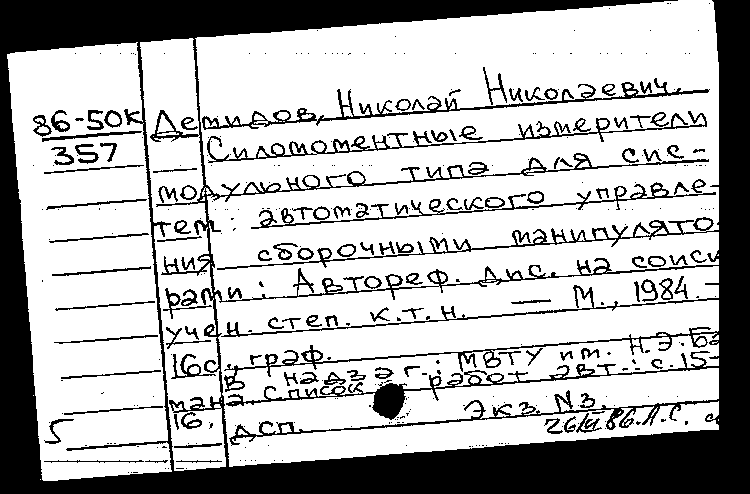 86-50К Демидов, Николай Николаевич.
357 Силомоментные измерители
модульного типа для сис-
тем: автоматического управле-
ния сборочными манипулято
рами: Автореф. дис. на соиск
учен. степ. к.т.н. — М., 1984. —
16с., граф.
В надзаг.: МВТУ им. Н.Э.Ба
мана. Список работ авт.: с.15-
16.
5 ДСП. Экз. №3.
86. А.С.